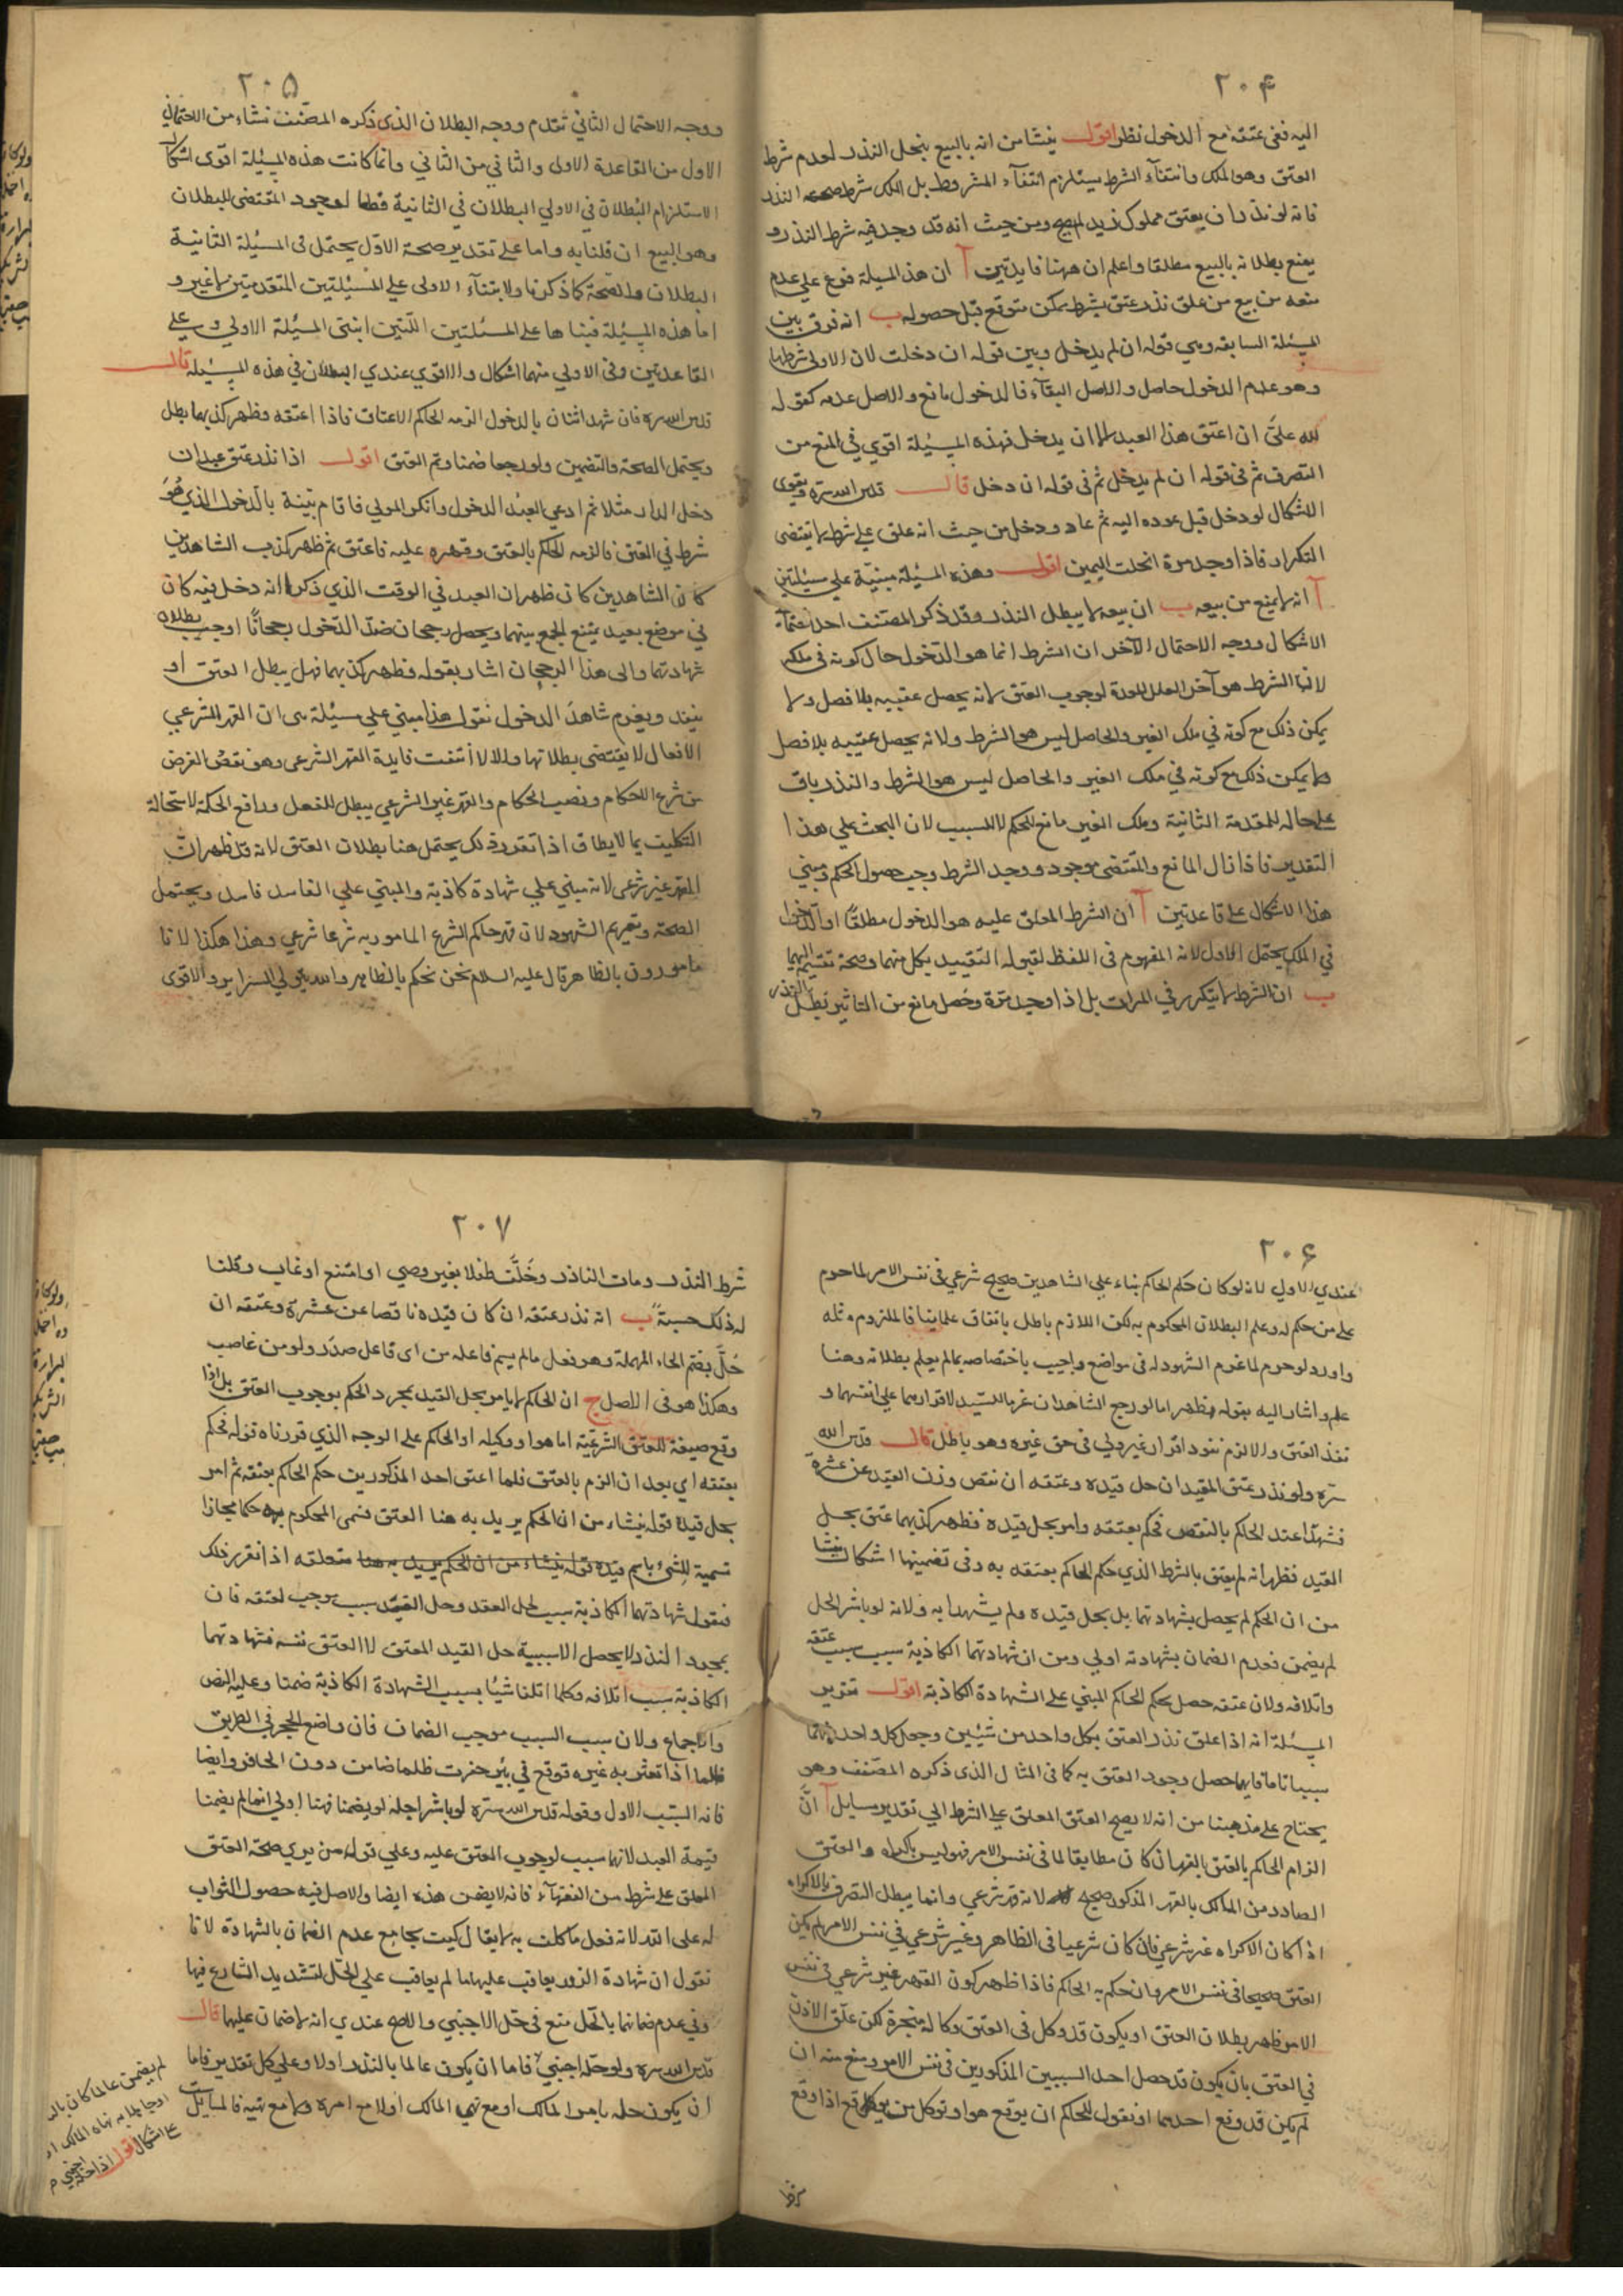 ٢٠۴
اليه ففى عتقه مع الدخول نظر اقول ينشا من انه بالبيع ينحل النذر لعدم شرط
العتق وهو الملك وانتفآء الشرط يستلزم انتفآء المشروط بل الملك شرط صحة النذر
فانه لو نذر ان يعتق مملوك زيد لم يصح ومن حيث انه قد وجد فيه شرط النذر و
يمنع بطلانه بالبيع مطلقا واعلم ان ههنا فايدتين آ ان هذ المسيلة فرع على عدم
منعه من بيع من علق نذر عتقه بشرط يمكن متوقع قبل حصوله ب انه فرق بين
المسيلة السابقه وهي قوله ان لم يدخل وبين قوله ان دخلت لان الاولى شرطها
وهو عدم الدخول حاصل والاصل البقآء فالدخول مانع والاصل عدمه كقوله
لله علىَّ ان اعتق هذا العبد الا ان يدخل فهذه المسيلة اقوي في المنع من
التصرف ثم في قوله ان لم يدخل ثم فى قوله ان دخل قال قدس الله سره ويقوى
الاشكال لو دخل قبل عوده اليه ثم عاد ودخل من حيث انه علق على شرط لا يقتضى
التكرار فاذا وجد مرة انحلت اليمين اقول وهذه المسيلة مبنيّة على مسيلتين
آ انه لا يمنع من بيعه ب ان بيعه لا يبطل النذر وقد ذكر المصنف احد
الاشكال ووجه الاحتمال الآخر ان الشرط انما هو الدخول حال كونه في ملكه
لان الشرط هو آخر العلل لوجوب العتق لانه يحصل عقيبه بلا فصل ولا
يمكن ذلك مع كونه في ملك الغير والحاصل ليس هو الشرط ولانه يحصل عقيبه بلا فصل
ولا يمكن ذلك مع كونه في ملك الغير والحاصل ليس هو الشرط والنذر باق
على حاله للمقدمة الثانية وملك الغير مانع للحكم لا للسبب لان البحث على هذا
التقدير فاذا زال المانع والمقتضى موجود ووجد الشرط وجب حصول الحكم ومبني
هذا الاشكال على قاعدتين آ ان الشرط المعلق عليه هو الدخول مطلقًا او الدخول
في الملك يحتمل الاول لانه المفهوم فى اللفظ لقبوله التقييد بكل منهما وصحة تقسيمه اليهما
ب ان الشرط لا يتكرر في المرات بل اذا وجد مرة وحصل مانع من التاثير بطل النذر
٢٠۵
ووجه الاحتمال الثاني تقدم ووجه البطلان الذى ذكره المصنف نشاء من الاحتمال
الاول من القاعدة الاولى والثاني من الثاني وانما كانت هذه المسيلة اقوى اشكالا
لاستلزام البطلان في الاولى البطلان في الثانية قطعا لوجود المقتضى للبطلان
وهو البيع ان قلنا به واما على تقدير صحة الاول يحتمل فى المسيلة الثانية
البطلان والصحة كما ذكرنا ولابتنآء الاولى على المسيلتين المتقدمتين لا غير و
اما هذه المسيلة فبناها على المسئلتين اللتين ابتنى المسيلة الاولى وعلى
القاعدتين وفى الاولى منهما اشكال والاقوي عندي البطلان في هذه المسيلة قال
قدس الله سره فان شهد اثنان بالدخول الزمه الحاكم الاعتاق فاذا اعتقه وظهر كذبهما بطل
ويحتمل الصحة والتضمين ولو رجعا ضمنا وتم العتق اقول اذا نذر عتق عبد ان
دخل الدار مثلا ثم ادعى العبد الدخول وانكر المولي فاقام بينة بالدخول الذي هو
شرط في العتق فالزمه الحاكم بالعتق وقهره عليه فاعتق ثم ظهر كذب الشاهدين
كما ان الشاهدين كان ظهر ان العبد في الوقت الذي ذكرا انه دخل فيه كان
في موضع بعيد يمتنع الجمع بينهما ويحصل رجحان ضدّ الدخول رجحانًا اوجب بطلان
شهادتهما والى هذا الرجحان اشار بقوله فظهر كذبهما فهل يبطل العتق او
ينفذ ويغرم شاهدَا الدخول نقول هذا مبني على مسيلة هى ان القهر الشرعي
الافعال لا يقتضى بطلانها والا لانتفت فايدة القهر الشرعى وهو نقض الغرض
من شرع الاحكام ونصب الحكام والقهر غير الشرعي يبطل الفعل ورافع الحكم لاستحالة
التكليف بما لا يطاق اذا تقرر ذلك يحتمل هنا بطلان العتق لانه قد ظهر ان
القهر غير شرعى لانه مبني على شهادة كاذبة والمبني على الفاسد فاسد ويحتمل
الصحة وتغريم الشهود لان قهر حاكم الشرع المامور به شرعا شرعي وهذا هكذا لانا
مامورون بالظاهر قال عليه السلام نحن نحكم بالظاهر والله يتولي السراير والاقوى
٢٠۶
عندي الاول لانه لو كان حكم الحاكم بناء على الشاهدين صحيح شرعي فى نفس الامر لما حرم
على من حكم له وعلم البطلان المحكوم به لكن اللازم باطل باتفاق علمائنا فالملزوم مثله
واورد لو حرم لما غرم الشهود له فى مواضع واجيب باختصاصه بما لم يعلم بطلانه وهنا
علم واشار اليه بقوله فظهر اما لو رجع الشاهدان غرما للسيد لاقرارهما على انفسهما و
نفذ العتق والا لزم نفوذ اقرار غير ولي فى حق غيره وهو باطل قال قدس الله
سره ولو نذر عتق المقيد ان حل قيده وعتقه ان نقص وزن القيد عن عشرة
فشهدا عند الحاكم بالنقص فحكم بعتقه وامر بحل قيده فظهر كذبهما عتق بحل
القيد فظهر انه لم يعتق بالشرط الذي حكم الحاكم بعتقه به وفى تضمينهما اشكال ينشا
من ان الحكم لم يحصل بشهادتهما بل بحل قيده ولم يشهدا به ولانه لو باشر الحل
لم يضمن فعدم الضمان بشهادته اولي ومن ان شهادتهما الكاذبة سبب سبب عتقه
واتلافه ولان عتقه حصل بحكم الحاكم المبني على الشهادة الكاذبة اقول تقرير
المسئلة انه اذا علق نذر العتق بكل واحد من شيئين وجعل كل واحد منهما
سببا تاما فايهما حصل وجود العتق به كما فى المثال الذى ذكره المصنف وهو
يحتاج على مذهبنا من انه لا يصح العتق المعلق على الشرط الي تقدير مسايل آ انَّ
الزام الحاكم بالعتق بالقهر ان كان مطابقا لما فى نفس الامر فهو ليس باكراه والعتق
الصادر من المالك بالقهر المذكور صحيح لانه قهر شرعي وانما يبطل التصرف بالاكراه
اذا كان الاكراه غير شرعي فان كان شرعيا في الظاهر وغير شرعي في نفس الامر لم يكن
العتق صحيحا فى نفس الامر وان حكم به الحاكم فاذا ظهر كون القهر غير شرعي فى نفس
الامر ظهر بطلان العتق او يكون قد وكل فى العتق وكالة منجزة لكن علّق الاذن
في العتق بان يكون قد حصل احد السببين المذكورين فى نفس الامر ومنع منه ان
لم يكن قد وقع احدهما او نقول للحاكم ان يوقع هو او توكل من يوقع اذا وقع
٢٠٧
شرط النذر ومات الناذر وخَلَّف طفلا بغير وصي او امتنع او غاب وقلنا
له ذلك حسبةً ب انه نذر عتقه ان كان قيده ناقصا عن عشرة وعتقه ان
حُلَّ بضم الحاء المهملة وهو فعل ما لم يسم فاعله من اى فاعل صدر ولو من غاصب
وهكذا هو فى الاصل ج ان الحاكم لا يامر بحل القيد بمجرد الحكم بوجوب العتق بل اذا
وقع صيغة للعتق الشرعيّة اما هو او وكيله او الحاكم على الوجه الذي قررناه قوله فحكم
بعتقه اي بعد ان الزم بالعتق فلما اعتق احد المذكورين حكم الحاكم بعتقه ثم امر
بحل قيده قوله ينشاء من ان الحكم يريد به هنا العتق فسمى المحكوم به حكما مجازا
تسمية للشئ باسم قيده قوله ينشاء من ان الحكم يريد به هنا متعلقه اذا تقرر ذلك
فنقول شهادتهما الكاذبة سبب لحل العقد وحل القيد سبب يوجب لعتقه فان
بمجرد النذر لا يحصل الا سببية حل القيد المعتق لا العتق نفسه فشهادتهما
الكاذبة سبب اتلافه وكلما اتلفا شيئا بسبب الشهادة الكاذبة ضمنا وعليه النص
والاجماع ولان سبب السبب موجب الضمان فان واضع الحجر فى الطريق
ظلما اذا تعثر به غيره فوقع في بئر حفرت ظلما ضامن دون الحافر وايضا
فانه السبب الاول وقوله قدس الله سره لو باشرا حله لم يضمنا فهنا اولي انهما لم يضمنا
قيمة العبد لانهما سبب لوجوب العتق عليه وعلي قول من يري صحة العتق
المعلق على شرط من الفقهآء فانه لا يضمن هذه ايضا والاصل فيه حصول الثواب
له على الله لانه فعل ما كلف به لا يقال كيف يجامع عدم الضمان بالشهادة لانا
نقول ان شهادة الزور يعاقب عليها ما لم يعاقب على الحل لتشديد الشارع فيها
وفي عدم ضمانهما بالحل منع فى حل الاجنبي والاصح عندي انه لا ضمان عليهما قال
قدس الله سره ولو حله اجنبي فاما ان يكون عالما بالنذر او لا وعلي كل تقدير فاما
ان يكون حله بامر المالك او مع نهي المالك او لا مع امره ولا مع نهيه فالمسايل
لم يضمن عالما كان بالنذر
او جاهلا به نهاه المالك او
لا على اشكال اقول
اذا حله اجنبي م